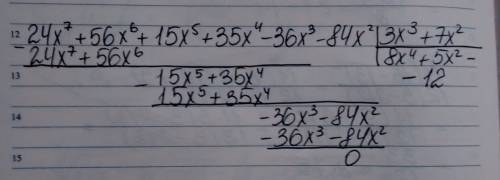 12 - 24x⁷+56x⁶+15x⁵+35x⁴-36x³-84x² | 3x³+7x²
24x⁷+56x⁶ | 8x⁴+5x²-
13 - 15x⁵+35x⁴ -12
15x⁵+35x⁴
14 -36x³-84x²
-36x³-84x²
15 0